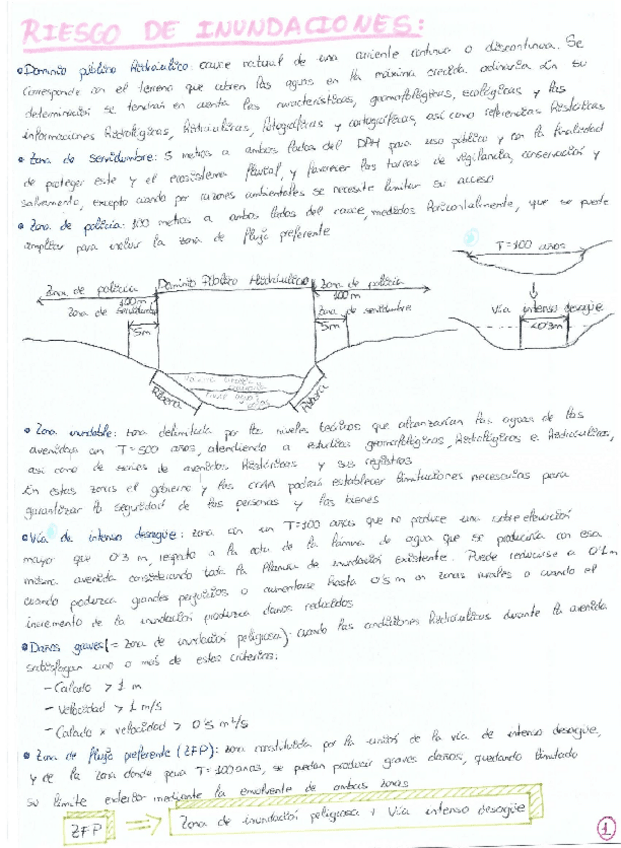 RIESGO DE INUNDACIONES:
• Dominio público hidráulico: cauce natural de una corriente continua o discontinua. Se
corresponde con el terreno que cubren las aguas en la máxima crecida ordinaria. En su
determinación se tendrán en cuenta las características, geomorfológicas, ecológicas y las
informaciones hidrológicas, hidráulicas, fotográficas y cartográficas, así como referencias históricas
• Zona de servidumbre: 5 metros a ambos lados del DPH para uso público y con la finalidad
de proteger este y el ecosistema fluvial, y favorecer las tareas de vigilancia, conservación y
salvamento, excepto cuando por razones ambientales se necesite limitar su acceso
• Zona de policía: 100 metros a ambos lados del cauce, medidos horizontalmente, que se puede
ampliar para incluir la zona de flujo preferente
T=100 años
Zona de policía Dominio Público Hidráulico Zona de policía
100m 100m
Zona de servidumbre Zona de servidumbre
5m 5m
Vía intenso desagüe
<0'3m
Ribera Ribera
• Zona inundable: zona delimitada por los niveles teóricos que alcanzarían las aguas de las
avenidas con T=500 años, atendiendo a estudios geomorfológicos, hidrológicos e hidráulicos,
así como de series de avenidas históricas y sus registros
En estas zonas el gobierno y las CCAA podrán establecer limitaciones necesarias para
garantizar la seguridad de las personas y los bienes
• Vía de intenso desagüe: zona con un T=100 años que no produce una sobreelevación
mayor que 0'3 m, respecto a la cota de la lámina de agua que se produciría con esa
misma avenida considerando toda la llanura de inundación existente. Puede reducirse a 0'1 m
cuando produzca grandes perjuicios o aumentarse hasta 0'5 m en zonas rurales o cuando el
incremento de la inundación produzca daños reducidos
• Daños graves (= zona de inundación peligrosa): cuando las condiciones hidráulicas durante la avenida
satisfagan uno o más de estos criterios:
- Calado > 1 m
- Velocidad > 1 m/s
- Calado x velocidad > 0'5 m²/s
• Zona de flujo preferente (ZFP): zona constituida por la unión de la vía de intenso desagüe,
y de la zona donde para T=100 años, se puedan producir graves daños, quedando limitado
su límite exterior mediante la envolvente de ambas zonas
ZFP ⇒ Zona de inundación peligrosa + Vía intenso desagüe
1